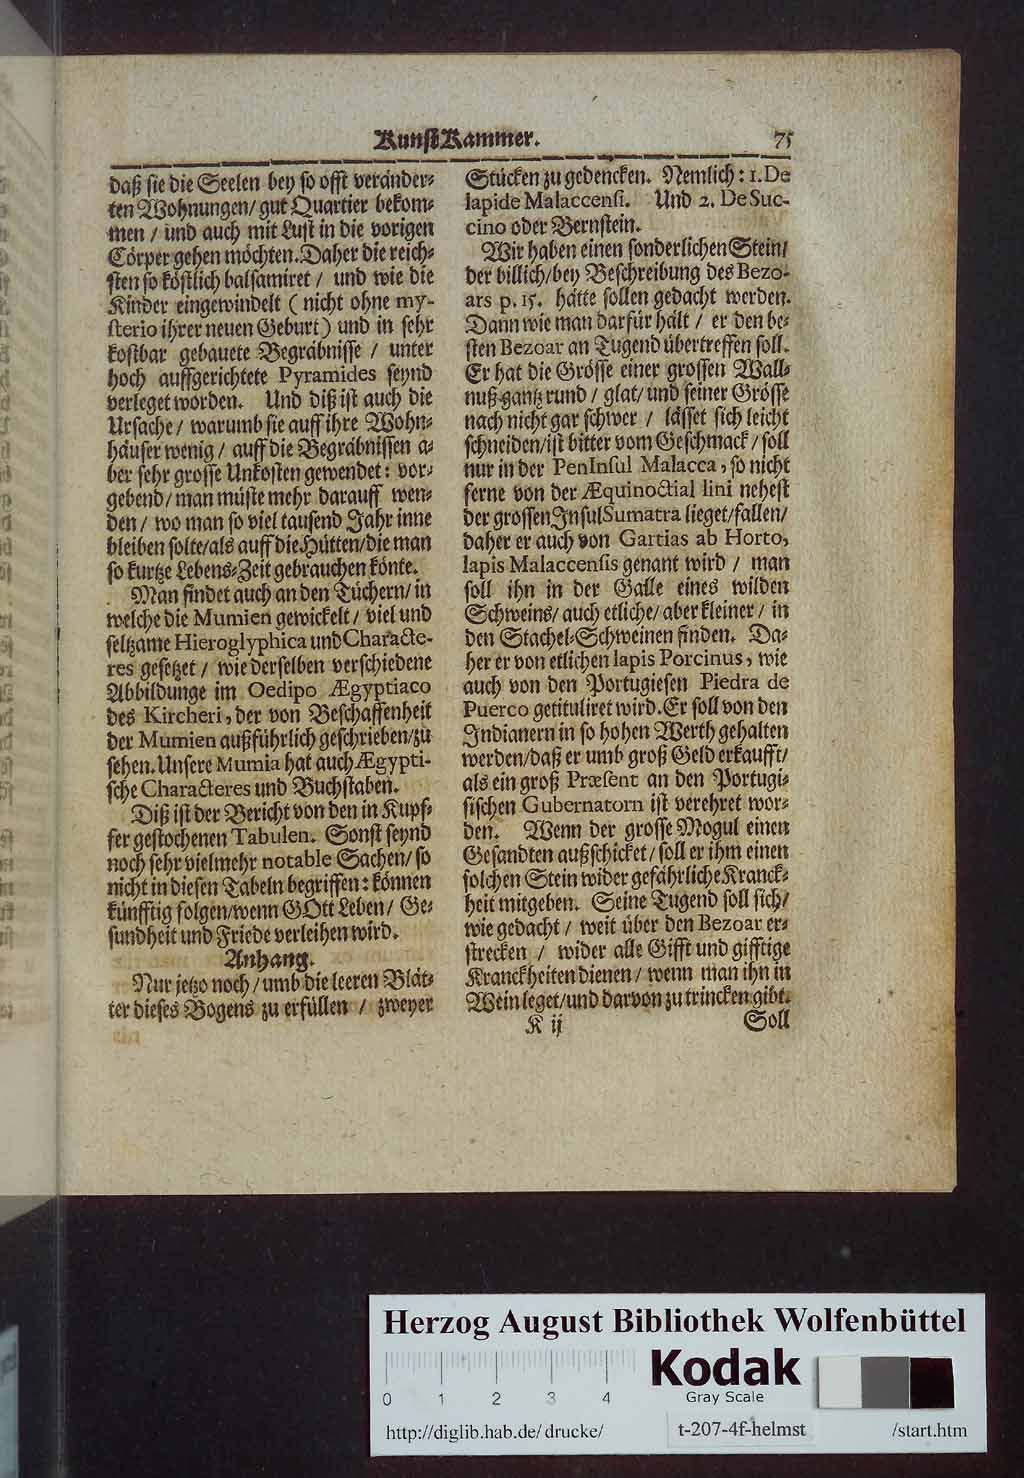 KunstKammer. 75
daß sie die Seelen bey so offt veränder⸗
ten Wohnungen/ gut Quartier bekom⸗
men / und auch mit Lust in die vorigen
Cörper gehen möchten. Daher die reich⸗
sten so köstlich balsamiret / und wie die
Kinder eingewindelt ( nicht ohne my-
sterio ihrer neuen Geburt ) und in sehr
kostbar gebauete Begräbnisse / unter
hoch auffgerichtete Pyramides seynd
verleget worden. Und diß ist auch die
Ursache / warumb sie auff ihre Wohn⸗
häuser wenig / auff die Begräbnissen a⸗
ber sehr grosse Unkosten gewendet : vor⸗
gebend / man müste mehr darauff wen⸗
den / wo man so viel tausend Jahr inne
bleiben solte/als auff die Hütten/die man
so kurtze Lebens⸗Zeit gebrauchen könte.
Man findet auch an den Tüchern/ in
welche die Mumien gewickelt / viel und
seltzame Hieroglyphica und Characte-
res gesetzet / wie derselben verschiedene
Abbildunge im Oedipo Ægyptiaco
des Kircheri, der von Beschaffenheit
der Mumien außführlich geschrieben/zu
sehen. Unsere Mumia hat auch Ægypti-
sche Characteres und Buchstaben.
Diß ist der Bericht von den in Kupf⸗
fer gestochenen Tabulen. Sonst seynd
noch sehr vielmehr notable Sachen/ so
nicht in diesen Tabeln begriffen : können
künfftig folgen/wenn GOtt Leben/ Ge⸗
sundheit und Friede verleihen wird.
Anhang.
Nur jetzo noch / umb die leeren Blät⸗
ter dieses Bogens zu erfüllen / zweyer
Stücken zu gedencken. Nemlich : 1. De
lapide Malaccensi. Und 2. De Suc-
cino oder Bernstein.
Wir haben einen sonderlichen Stein/
der billich/ bey Beschreibung des Bezo-
ars p. 15. hätte sollen gedacht werden.
Dann wie man darfür hält / er den be⸗
sten Bezoar an Tugend übertreffen soll.
Er hat die Grösse einer grossen Wall⸗
nuß gantz rund / glat/ und seiner Grösse
nach nicht gar schwer / lässet sich leicht
schneiden/ist bitter vom Geschmack / soll
nur in der PenInsul Malacca, so nicht
ferne von der Æquinoctial lini nehest
der grossen Insul Sumatra lieget/fallen/
daher er auch von Gartias ab Horto,
lapis Malaccensis genant wird / man
soll ihn in der Galle eines wilden
Schweins/ auch etliche/ aber kleiner / in
den Stachel⸗Schweinen finden. Da⸗
her er von etlichen lapis Porcinus, wie
auch von den Portugiesen Piedra de
Puerco getituliret wird. Er soll von den
Indianern in so hohen Werth gehalten
werden/daß er umb groß Geld erkaufft/
als ein groß Præsent an den Portugi⸗
sischen Gubernatorn ist verehret wor⸗
den. Wenn der grosse Mogul einen
Gesandten außschicket / soll er ihm einen
solchen Stein wider gefährliche Kranck⸗
heit mitgeben. Seine Tugend soll sich/
wie gedacht / weit über den Bezoar er⸗
strecken / wider alle Gifft und gifftige
Kranckheiten dienen / wenn man ihn in
Wein leget/und darvon zu trincken gibt.
K ij Soll
Herzog August Bibliothek Wolfenbüttel
0 1 2 3 4
Kodak
Gray Scale
http://diglib.hab.de/drucke/ t-207-4f-helmst /start.htm